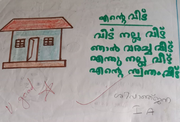 എന്റെ വീട്
വീട് നല്ല വീട്
ഞാൻ വരച്ച വീട്
എന്തു നല്ല വീട്
എന്റെ സ്വന്തം വീട്